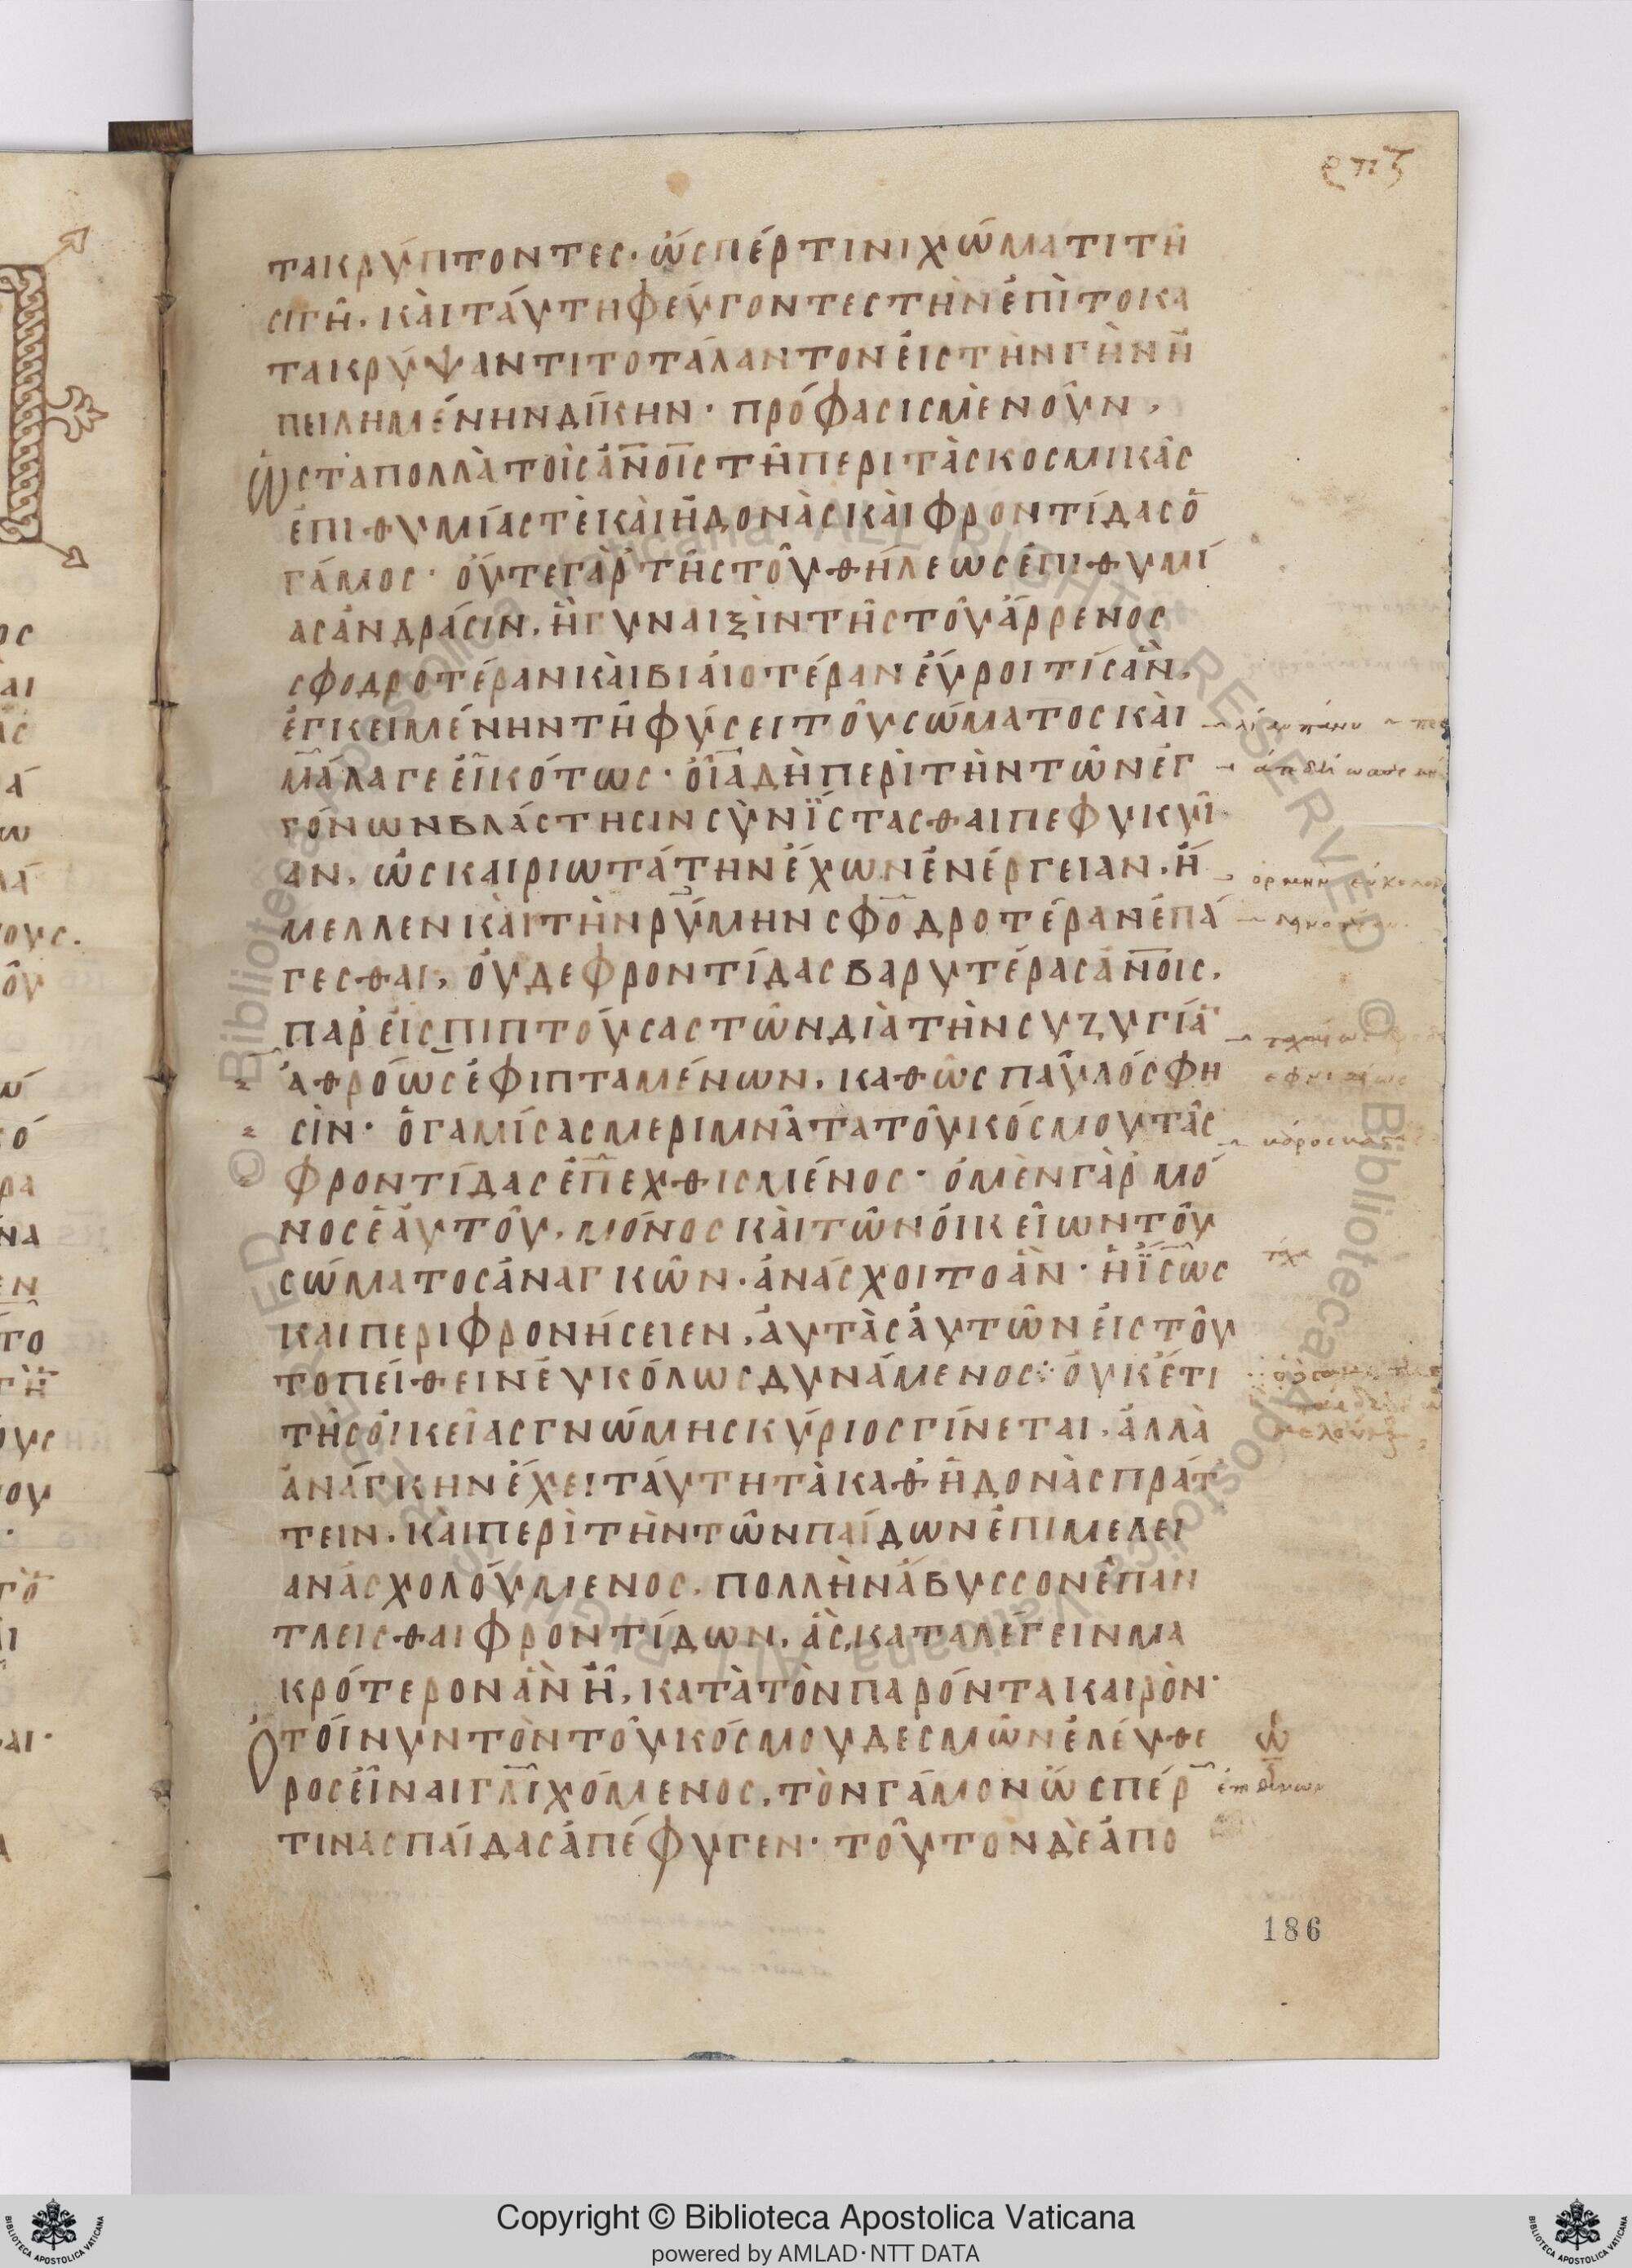 ρπϛ
τακρύπτοντες· ὥσπέρτινιχώματιτῆ
σιγῆ. κὰιτάυτηφεύγοντεςτὴνἐπὶτοκα
τακρύψαντιτοτάλαντονἐιςτὴνγῆνἠ
πειλημένηνδίκην· πρόφασιςμὲνοῦν,
ὡσταπολλὰτοῖςἀν̅οῖςτῆπεριτὰςκοσμικὰς
ἐπιθυμίαςτὲκὰιἡδονὰςκὰιφροντίδαςὁ
γάμος· ὄυτεγὰρτῆςτοῦθήλεωςἐπιθυμί
ασἀνδράσιν, ἢγυναιξὶντῆςτοῦἄρρενος
σφοδροτέρανκὰιβιάιοτέρανἑύροιτίςἂν,
ἐγκειμένηντῆφύσειτοῦσώματοςκὰι
μάλαγεἐῖκότως· ὁῖαδὴπερὶτὴντῶνἐγ
γόνωνβλάστησινσὺνΐστασθαιπεφυκυῖ
αν, ὡςκαιριωτάτηνἔχωνἐνέργειαν, ἤ
μελλενκὰιτὴνρύμηνσφοδροτέρανἐπά
γεσθαι, ὀυδεφροντίδαςβαρυτέρασἀν̅οις,
παρἐισπιπτούσαςτῶνδιὰτὴνσυζυγία
ἀθρόωςἐφιπταμένων, καθὼςπαῦλόςφη
σὶν· ὁγαμίσαςμεριμνᾶτατοῦκόσμουτὰς
φροντίδασἐπεχθισμένος· ὁμὲνγὰρμό
νοσἑαυτοῦ, μόνοςκὰιτῶνὀικείωντοῦ
σώματοςἀναγκῶν· ἀνάσχοιτοἂν· ἢΐσως
καιπεριφρονήσειεν, ἀυτὰσἀυτῶνἐιςτοῦ
τοπείθεινἐυκόλωςδυνάμενος· ὀυκἔτι
τῆςὀικείαςγνώμηςκύριοςγίνεται, ἀλλὰ
ἀνάγκηνἔχειτάυτητὰκαθἡδονὰςπράτ
τειν, κὰιπερὶτὴντῶνπαίδωνἐπιμελει
ανἀσχολούμενος, πολλὴνἄβυσσονἐπαν
τλεισθαιφροντίδων, ἃςκαταλέγεινμα
κρότερονἂνῆ, κατὰτὸνπαρόνταικαιρὸν·
ὁτοίνυντὸντοῦκόσμουδεσμῶνἐλέυθε
ροσἐῖναιγλῖχόμενος, τὸνγάμονὥσπέρ
τιναςπαίδασἀπέφυγεν· τοῦτονδὲἀπο
186
Copyright © Biblioteca Apostolica Vaticana
powered by AMLAD·NTT DATA